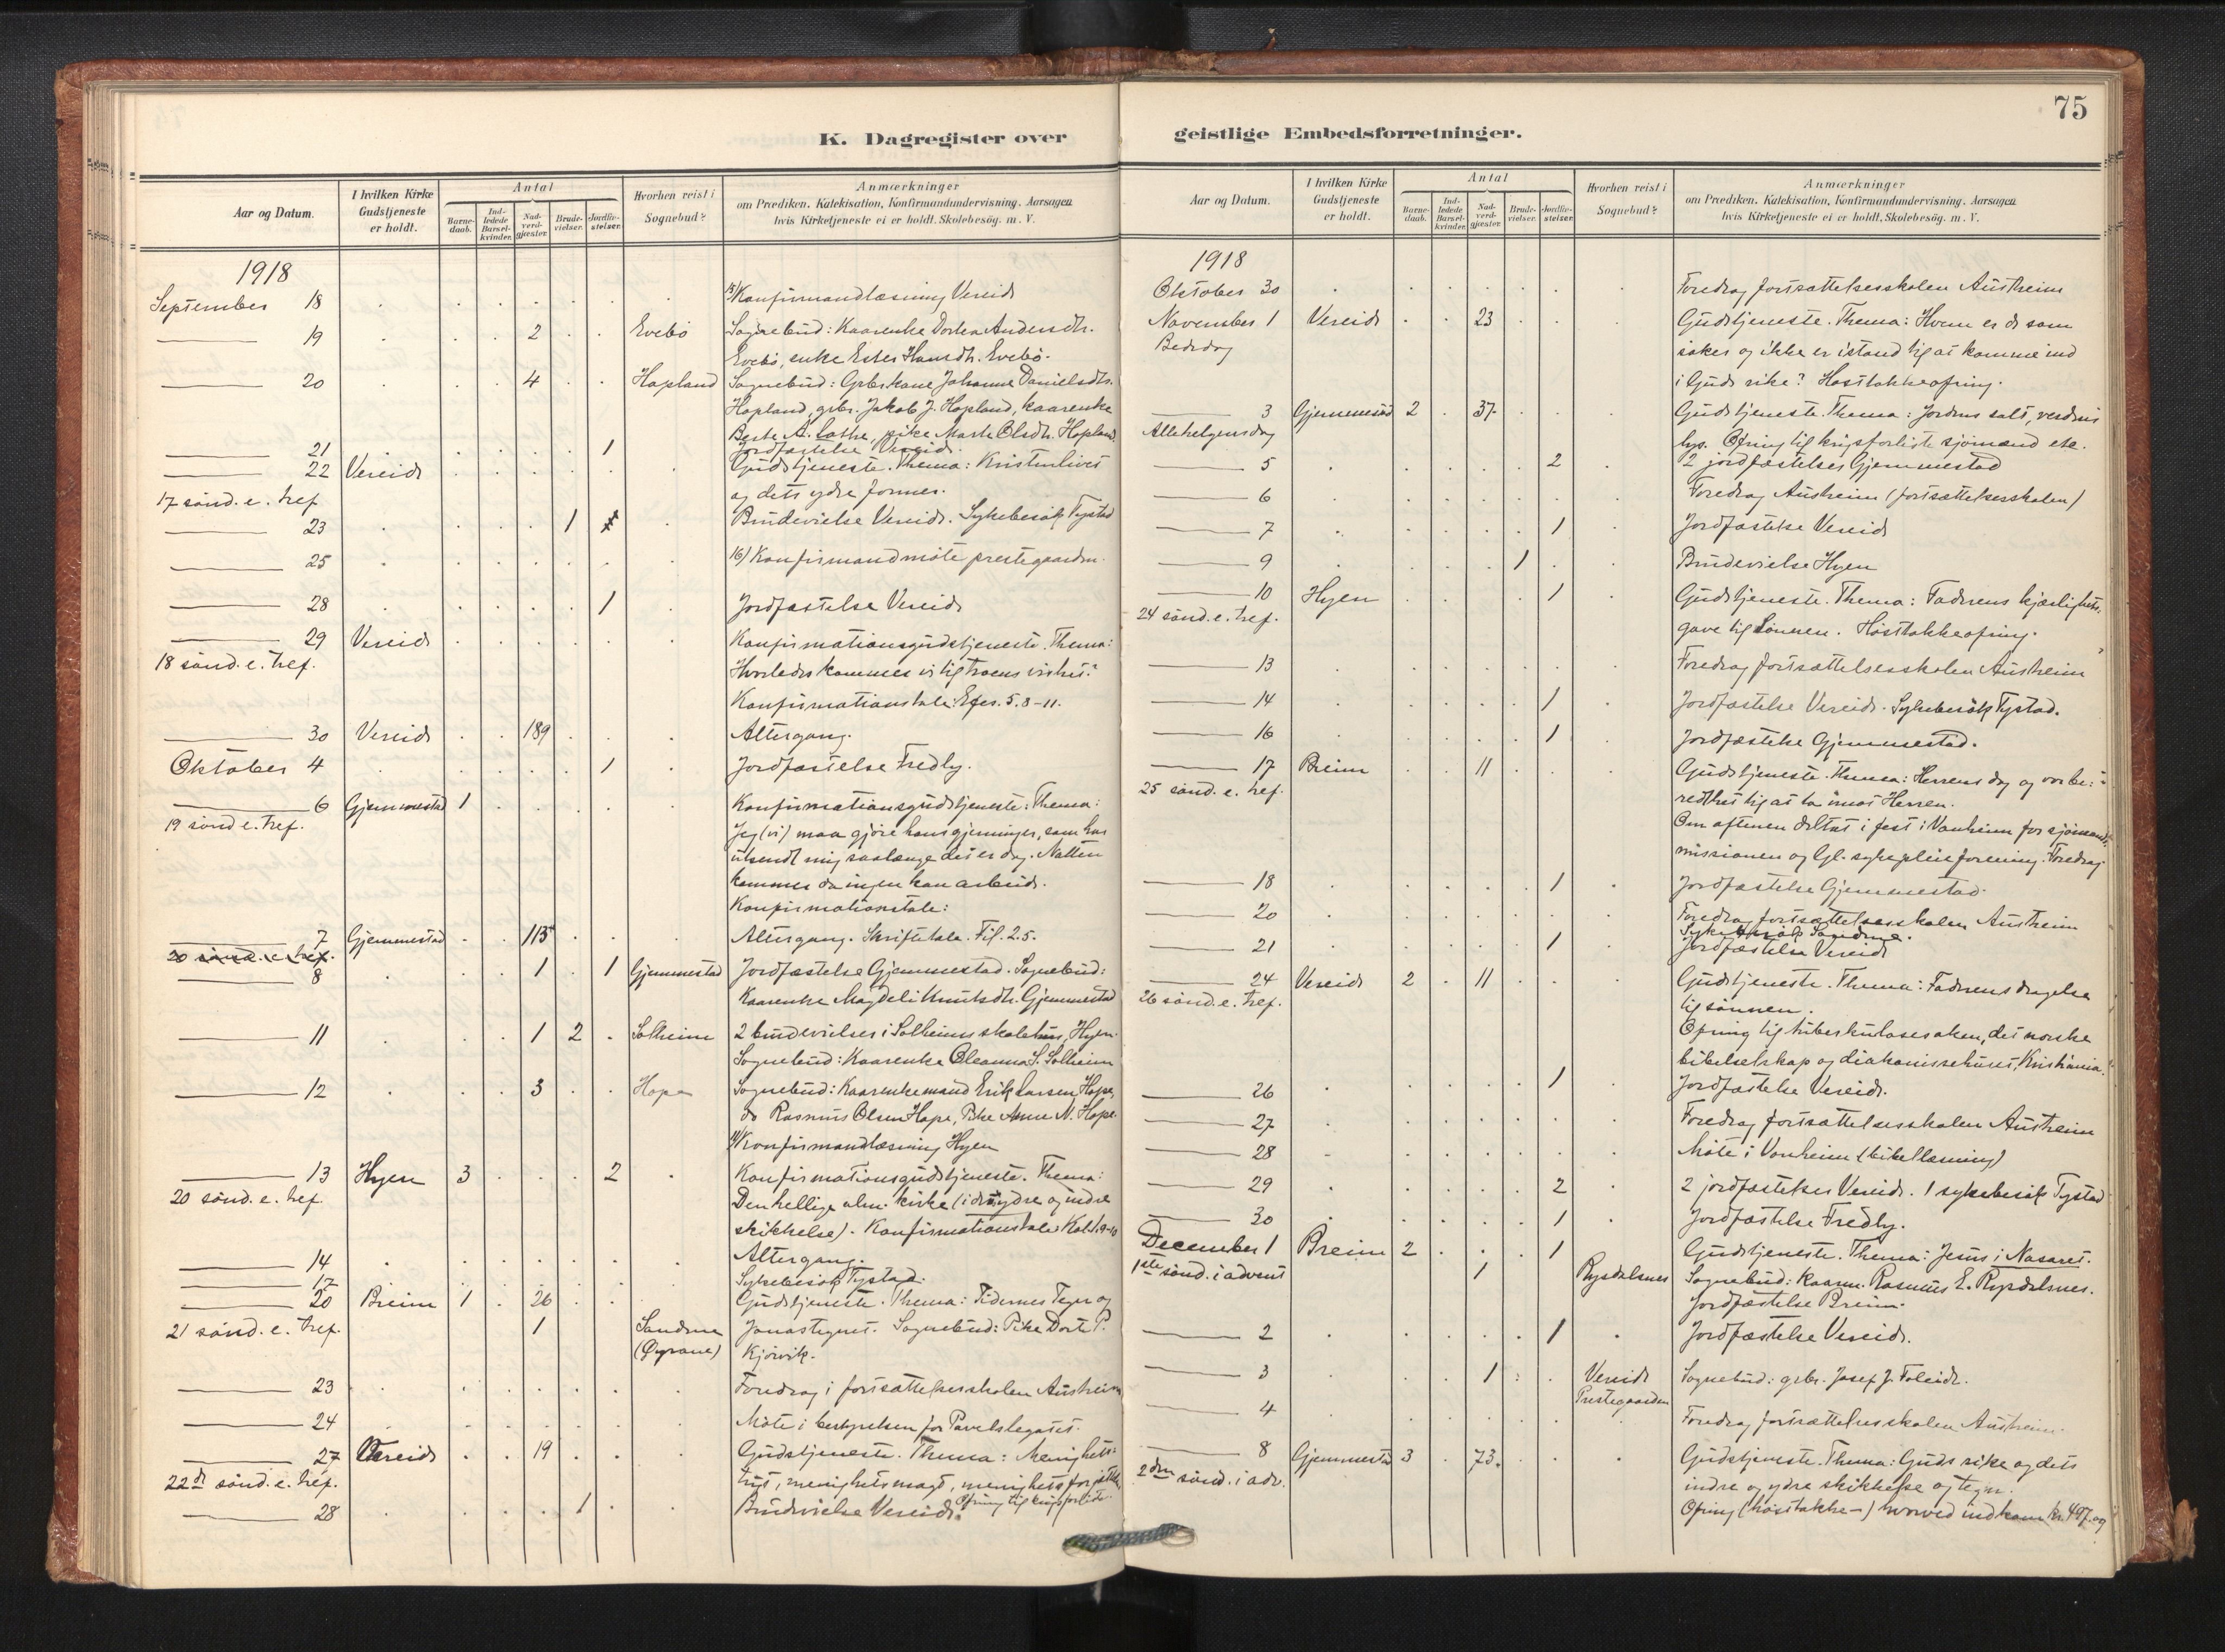 K. Dagregister over
Aar og Datum.
I hvilken Kirke
Gudstjeneste
er holdt.
Antal
Barne-
daab.
Ind-
ledede
Barsel-
kvinder.
Nad-
verd-
gjæster.
Brude-
vielser.
Jordfæ-
stelser.
Hvorhen reist i
Sognebud?
Anmærkninger
om Prædiken, Katekisation, Konfirmandundervisning. Aarsagen
hvis Kirketjeneste ei er holdt. Skolebesøg. m. V.
1918
September 18 15) Konfirmandlæsning Vereide
19 2 Evebø Sognebud: Kaarenke Dortea Andersdtr.
Evebø, enke Ester Hansdtr. Evebø.
20 4 Hopland Sognebud: Grbr.kone Johanne Danielsdtr.
Hopland, grbr. Jakob J. Hopland, kaarenke
Berte A. Lothe, pike Marte Olsdtr. Hopland.
21 1 Jordfæstelse Vereide.
22 Vereide Gudstjeneste. Thema: Kristenlivet
17 sønd. e. tref. og dets ydre former.
23 1 Brudevielse Vereide. Sykebesøk Tystad
25 16) Konfirmandmøte prestegaarden.
28 1 Jordfæstelse Vereide
29 Vereide Konfirmationsgudstjeneste. Thema:
18 sønd. e. tref. Hvorledes kommer vi til troens vished?
Konfirmationstale: Efes. 5. 8-11.
30 Vereide 189 Altergang.
Oktober 4 1 Jordfæstelse Fredly.
6 Gjemmestad 1 Konfirmationsgudstjeneste. Thema:
19 sønd e. tref. Jeg (vi) maa gjøre hans gjerninger, som har
utsendt mig saalænge det er dag. Natten
kommer da ingen kan arbeide.
Konfirmationstale:
7 Gjemmestad 113 Altergang. Skriftetale. Fil. 2.5.
20 sønd. e. tref.
8 1 1 Gjemmestad Jordfæstelse Gjemmestad. Sognebud:
Kaarenke Magdeli Knutsdtr. Gjemmestad
11 1 2 Solheim 2 brudevielser i Solheim skolehus, Hyen.
Sognebud: Kaarenke Oleanna S. Solheim
12 3 Hope Sognebud: Kaarenkemand Erik Larsen Hope,
do Rasmus Olsen Hope, Pike Anne N. Hope.
17) Konfirmandlæsning Hyen
13 Hyen 3 2 Konfirmationsgudstjeneste. Thema:
20 sønd. e. tref. Den hellige alm. kirke (i dens ydre og indre
skikkelse). Konfirmationstale Kol. 1.9-10
14 Altergang.
17 Sykebesøk Tystad.
20 Breim 1 26 Gudstjeneste. Thema: Tidernes Tegn og
21 sønd. e. tref. 1 Sandene Jonastegnet. Sognebud: Pike Dorte P.
(Øyrane) Kjørvik.
23 Foredrag i fortsættelsesskolen Austreim
24 Møte i bestyrelsen for Pavelslegatet.
27 Vereide 19 Gudstjeneste. Thema: Menighets-
22de sønd. e. tref. trøst, menighetsmagt, menighetsforjættelse.
Ofring til krigsforliste.
28 1 Brudevielse Vereide.
75
geistlige Embedsforretninger.
Aar og Datum.
I hvilken Kirke
Gudstjeneste
er holdt.
Antal
Barne-
daab.
Ind-
ledede
Barsel-
kvinder.
Nad-
verd-
gjæster.
Brude-
vielser.
Jordfæ-
stelser.
Hvorhen reist i
Sognebud?
Anmærkninger
om Prædiken. Katekisation, Konfirmandundervisning. Aarsagen
hvis Kirketjeneste ei er holdt, Skolebesøg. m. V.
1918
Oktober 30 Foredrag fortsættelsesskolen Austreim
November 1 Vereide 23 Gudstjeneste. Thema: Hvem er de som
Bededag søker og ikke er istand til at komme ind
i Guds rike? Høsttakkeofring.
3 Gjemmestad 2 37 Gudstjeneste. Thema: Jordens salt, verdens
Allehelgensdag lys. Ofring til krigsforliste sjømænd etc.
5 2 2 jordfæstelser Gjemmestad
6 Foredrag Austreim (fortsættelsesskolen)
7 1 Jordfæstelse Vereide
9 1 Brudevielse Hyen
10 Hyen 1 Gudstjeneste. Thema: Faderens kjærlighets-
24 sønd. e. tref. gave til Sønnen. Høsttakkeofring.
13 Foredrag fortsættelsesskolen Austreim
14 1 Jordfæstelse Vereide. Sykebesøk Tystad.
16 1 Jordfæstelse Gjemmestad.
17 Breim 11 Gudstjeneste. Thema: Herrens dag og vor be-
25 sønd. e. tref. redthet til at ta imot Herren.
Om aftenen deltat i fest i Vonheim for sjømands-
missionen og Gl. sykepleieforening. Foredrag.
18 1 Jordfæstelse Gjemmestad.
20 Foredrag fortsættelsesskolen Austreim
Sykebesøk Sandene.
21 1 Jordfæstelse Vereide
24 Vereide 2 11 Gudstjeneste. Thema: Faderens dragelse
26 sønd. e. tref. til sønnen.
Ofring til tuberkulosesaken, det norske
bibelselskap og diakonissehuset, Kristiania.
26 1 Jordfæstelse Vereide.
27 Foredrag fortsættelsesskolen Austreim
28 Møte i Vonheim (bibellæsning)
29 2 2 jordfæstelser Vereide. 1 sykebesøk Tystad
30 1 Jordfæstelse Fredly.
December 1 Breim 2 1 Gudstjeneste. Thema: Jesus i Nasaret.
1ste sønd. i advent 1 Rysdalsnes Sognebud: Kaarm. Rasmus E. Rysdalsnes.
Jordfæstelse Breim.
2 1 Jordfæstelse Vereide.
3 1 Vereide Sognebud: grbr. Josef J. Foleide.
Prestegaarden
4 Foredrag fortsættelsesskolen Austreim.
8 Gjemmestad 3 73 Gudstjeneste. Thema: Guds rike og dets
2den sønd. i adv. indre og ydre skikkelse og tegn.
Ofring (høsttakke-) hvorved indkom kr. 497. og